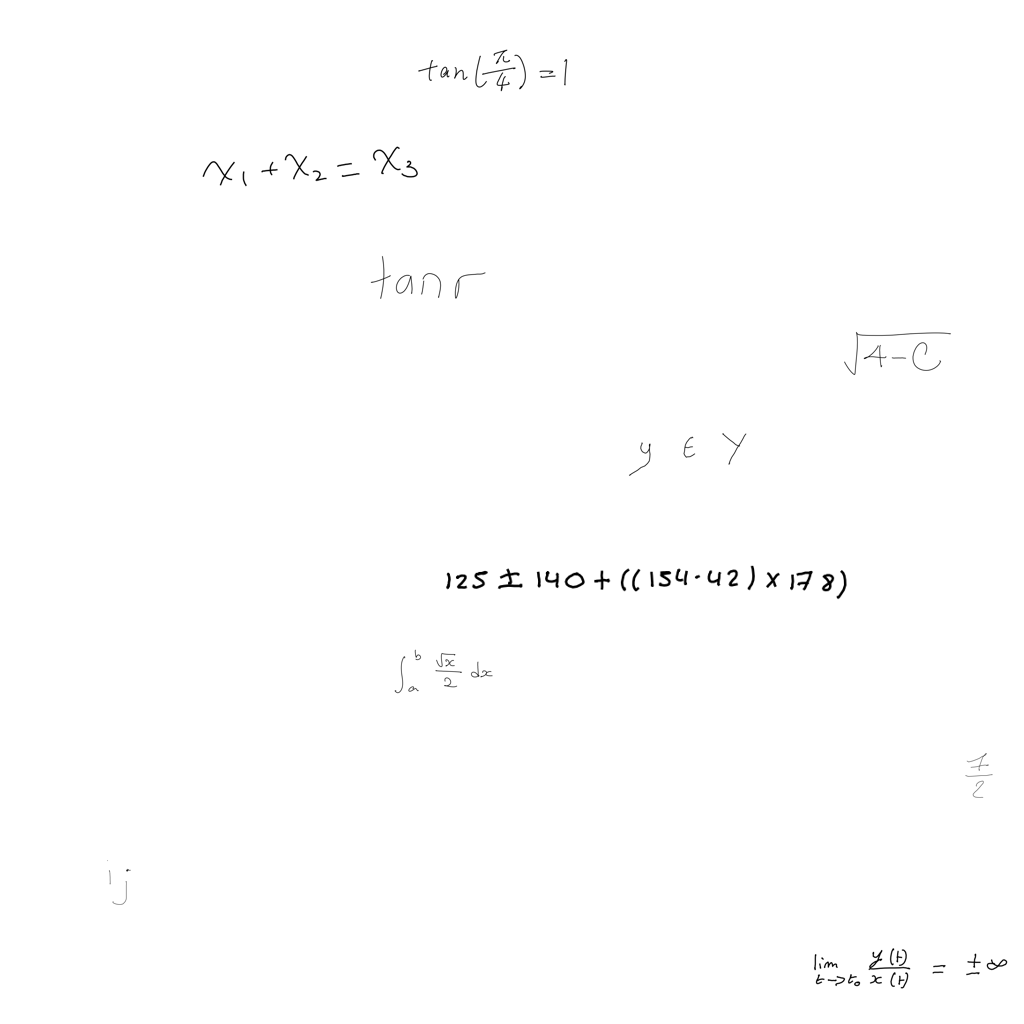 tan(π/4) = 1
x₁ + x₂ = x₃
tan r
√(4 - C)
y ∈ Y
125 ± 140 + ((154 · 42) × 178)
∫ₐᵇ √x/2 dx
7/2
ij
lim t→t₀ y(t)/x(t) = ±∞